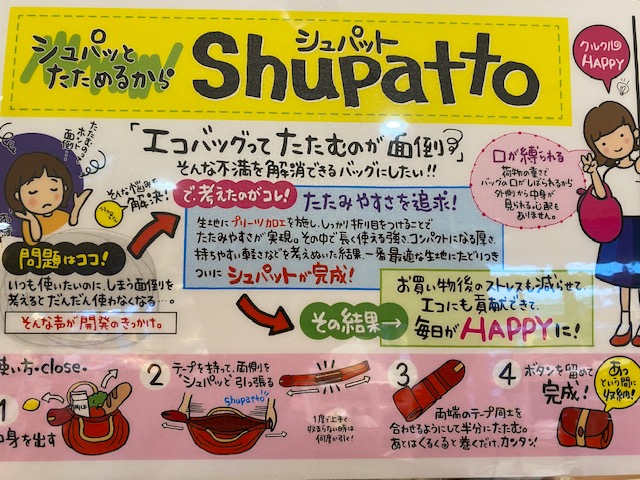 シュパッと
たためるから
シュパット
Shupatto
クルクル
HAPPY
「エコバッグってたたむのが面倒」
そんな不満を解消できるバッグにしたい!!
たたむのが
面倒…
そんな悩みを
解決!
で、考えたのがコレ!
たたみやすさを追求!
生地にプリーツ加工を施し、しっかり折り目をつけることで
たたみやすさが実現。その中で長く使える強さ、コンパクトになる厚さ、
持ちやすい軽さなどを考えぬいた結果、一番最適な生地にたどりつき
ついにシュパットが完成!
口が縛られる
荷物の重さで
バッグの口がしばられるから
外側から中身が
見られる心配も
ありません。
問題はココ!
いつも使いたいのに、しまう面倒を
考えるとだんだん使わなくなる…。
そんな声が開発のきっかけ。
その結果
お買い物後のストレスも減らせて
エコにも貢献できて、
毎日がHAPPYに!
使い方・close・
1
中身を出す
2
テープを持って、両側を
"シュパッ"と引っ張る
shupatto
1度で上手く
収まらない時は
何度か引く!
3
両端のテープ同士を
合わせるようにして半分にたたむ。
あとはくるくると巻くだけ、カンタン!
4
ボタンを留めて
完成!
あっ
という間に
収納!